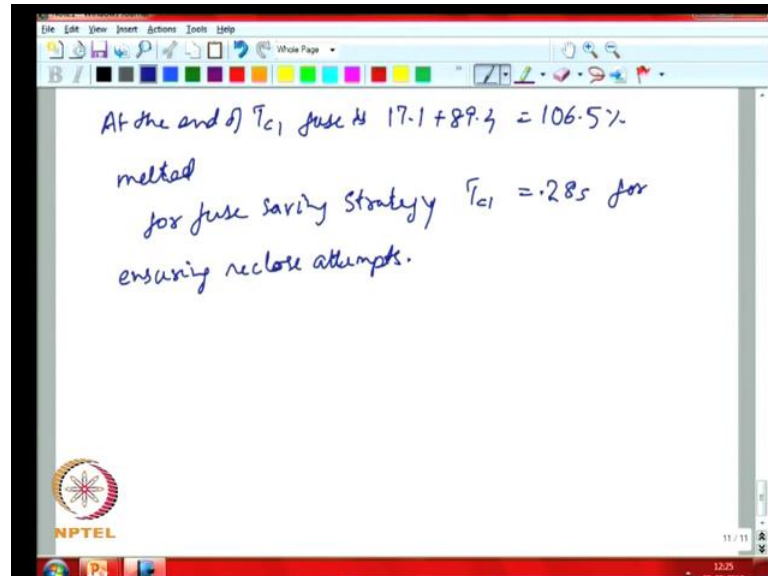 File Edit View Insert Actions Tools Help
Whole Page
B I
At the end of Tc1 fuse is 17.1 + 89.4 = 106.5%
melted
for fuse saving strategy Tc1 = .28s for
ensuring reclose attempts.
NPTEL
11 / 11
12:25